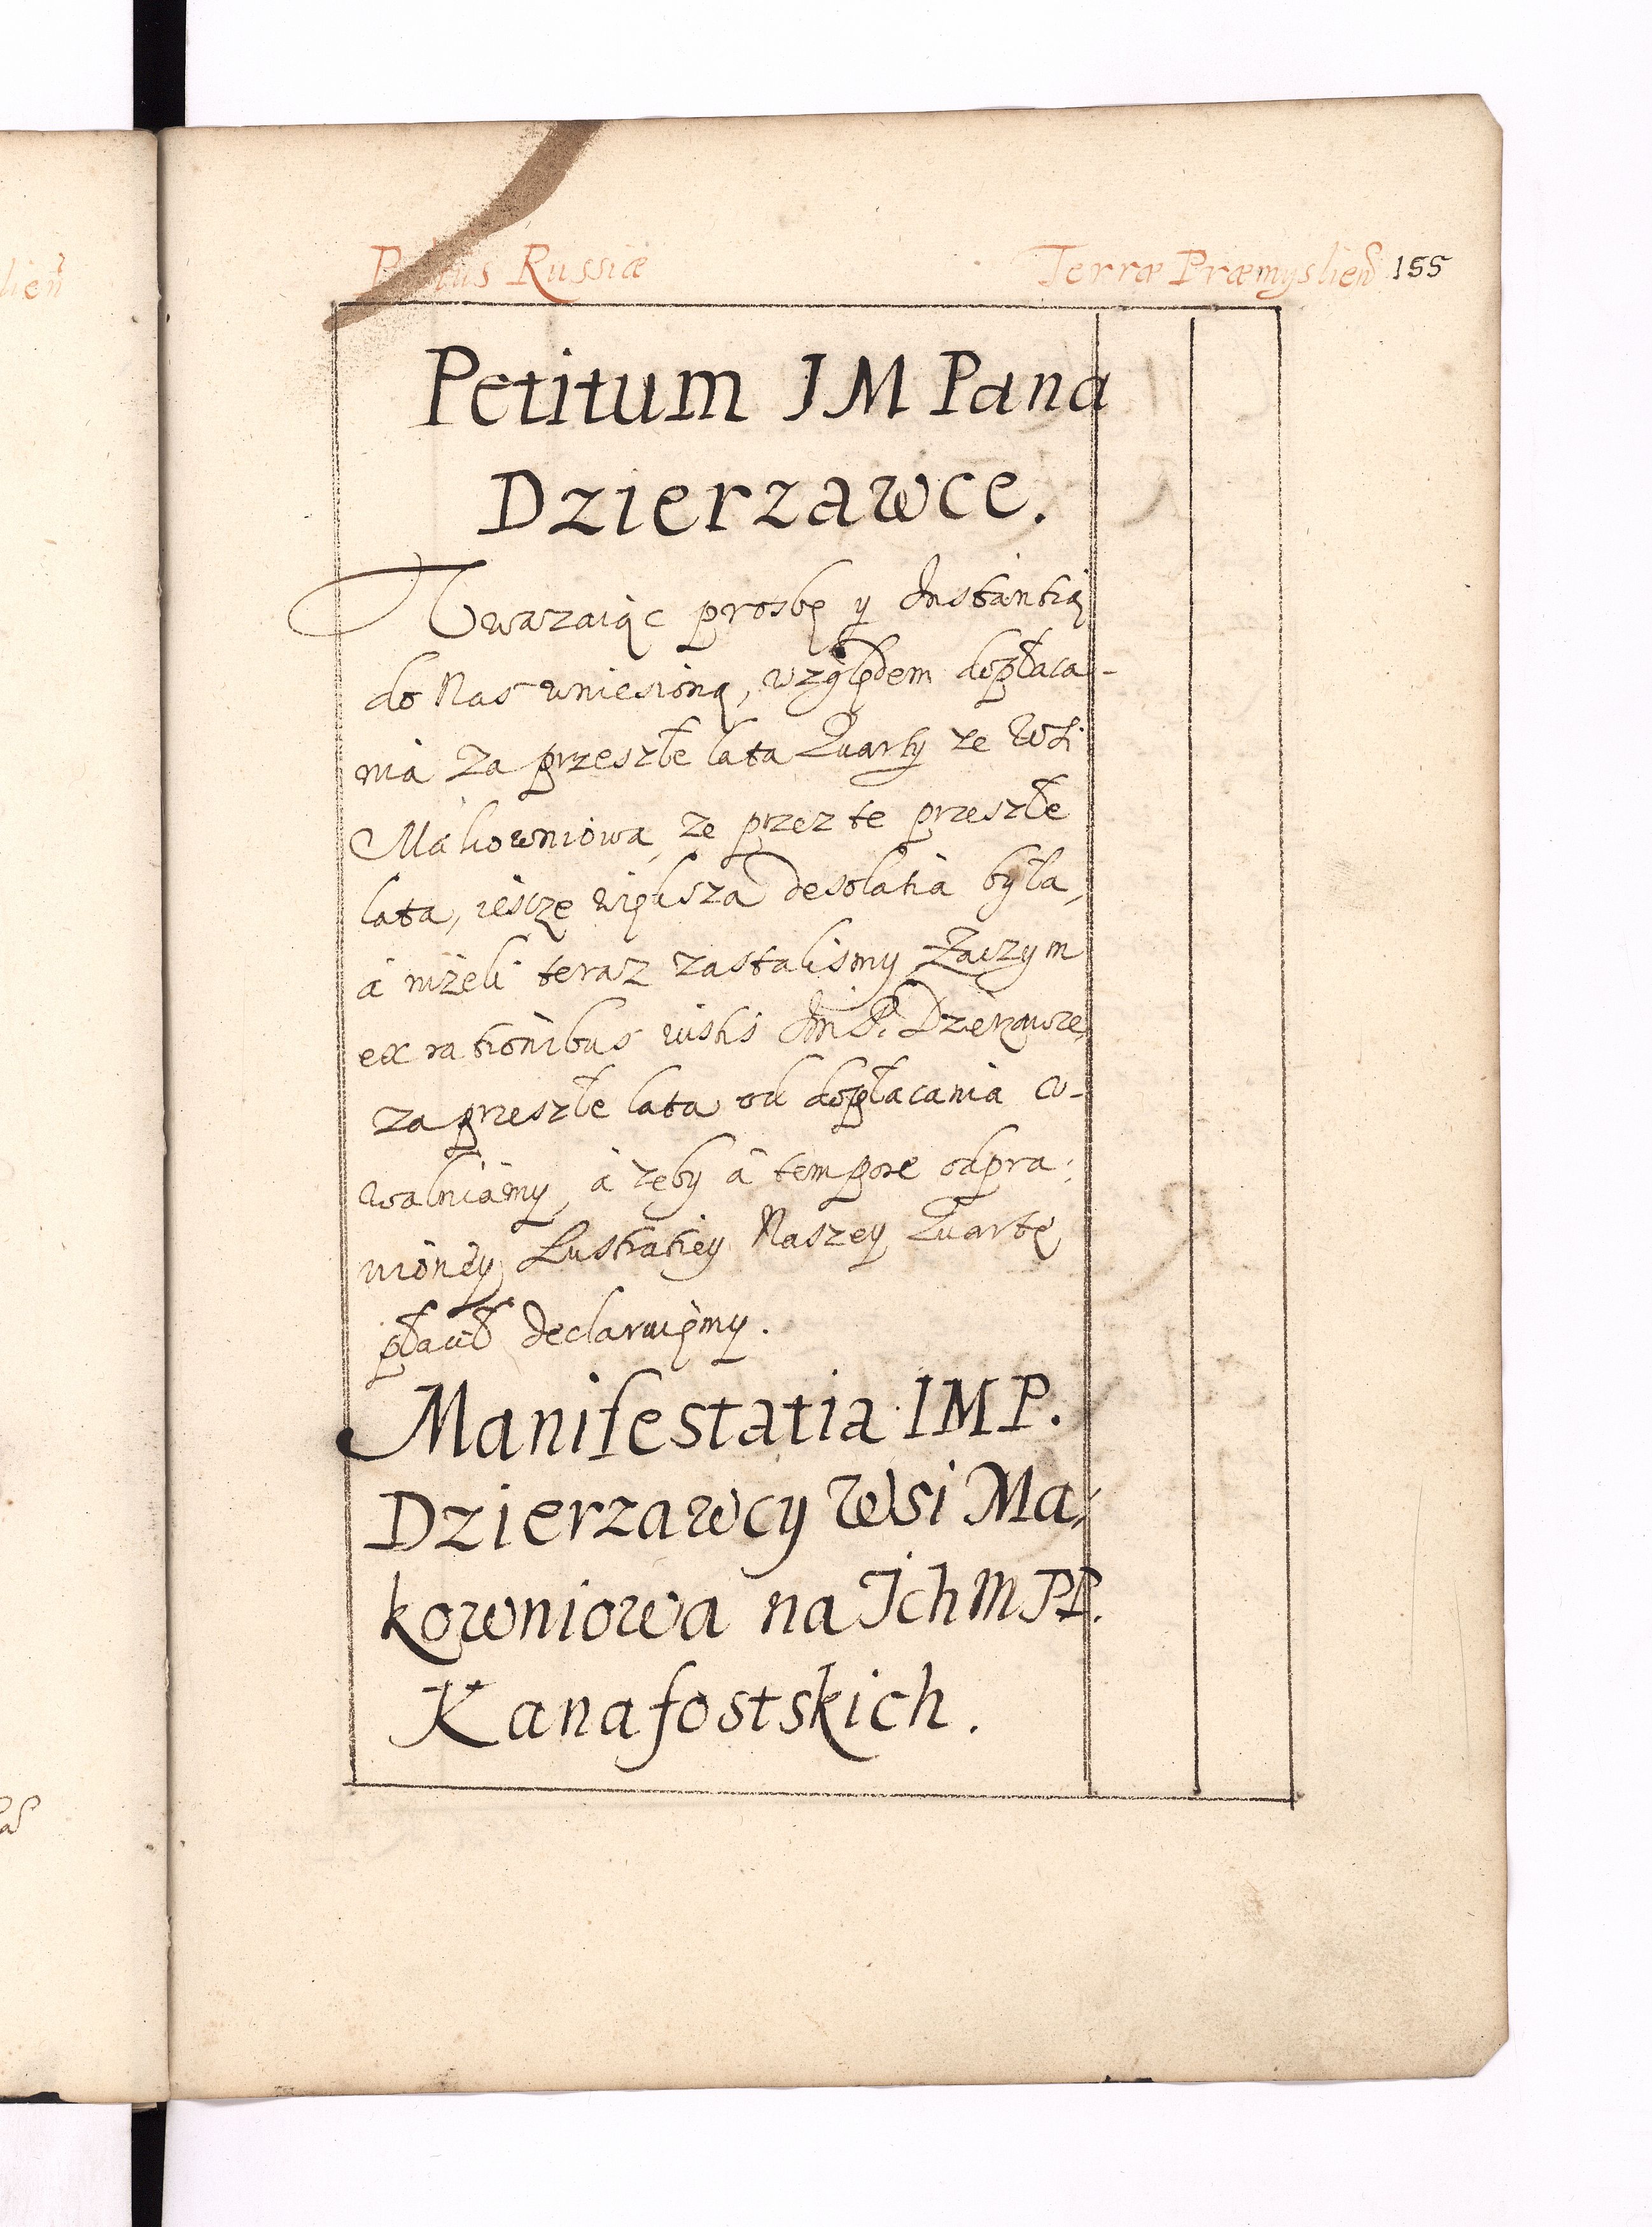 Russiæ Terræ Præmyslien 155
Petitum IM Pana
Dzierzawce.
Uwazaiąc prosbę y Instantią
do Nas wniesioną, względem dopłaca-
nia za przeszłe lata Quarty ze Wsi
Makowniowa, ze przez te przeszłe
lata, iescze większa desolatia była,
á niżeli teraz zastalismy Zaczym
ex rationibus iustis ImP. Dzierzawce,
za przeszłe lata od dopłacania u-
walniamy, á zęby á tempore odpra:
wioney Lustratiey Naszey Quartę
płacił declaruięmy.
Manifestatia IMP.
Dzierzawcy Wsi Ma,
kowniowa na Ich M PP.
Kanafostskich.